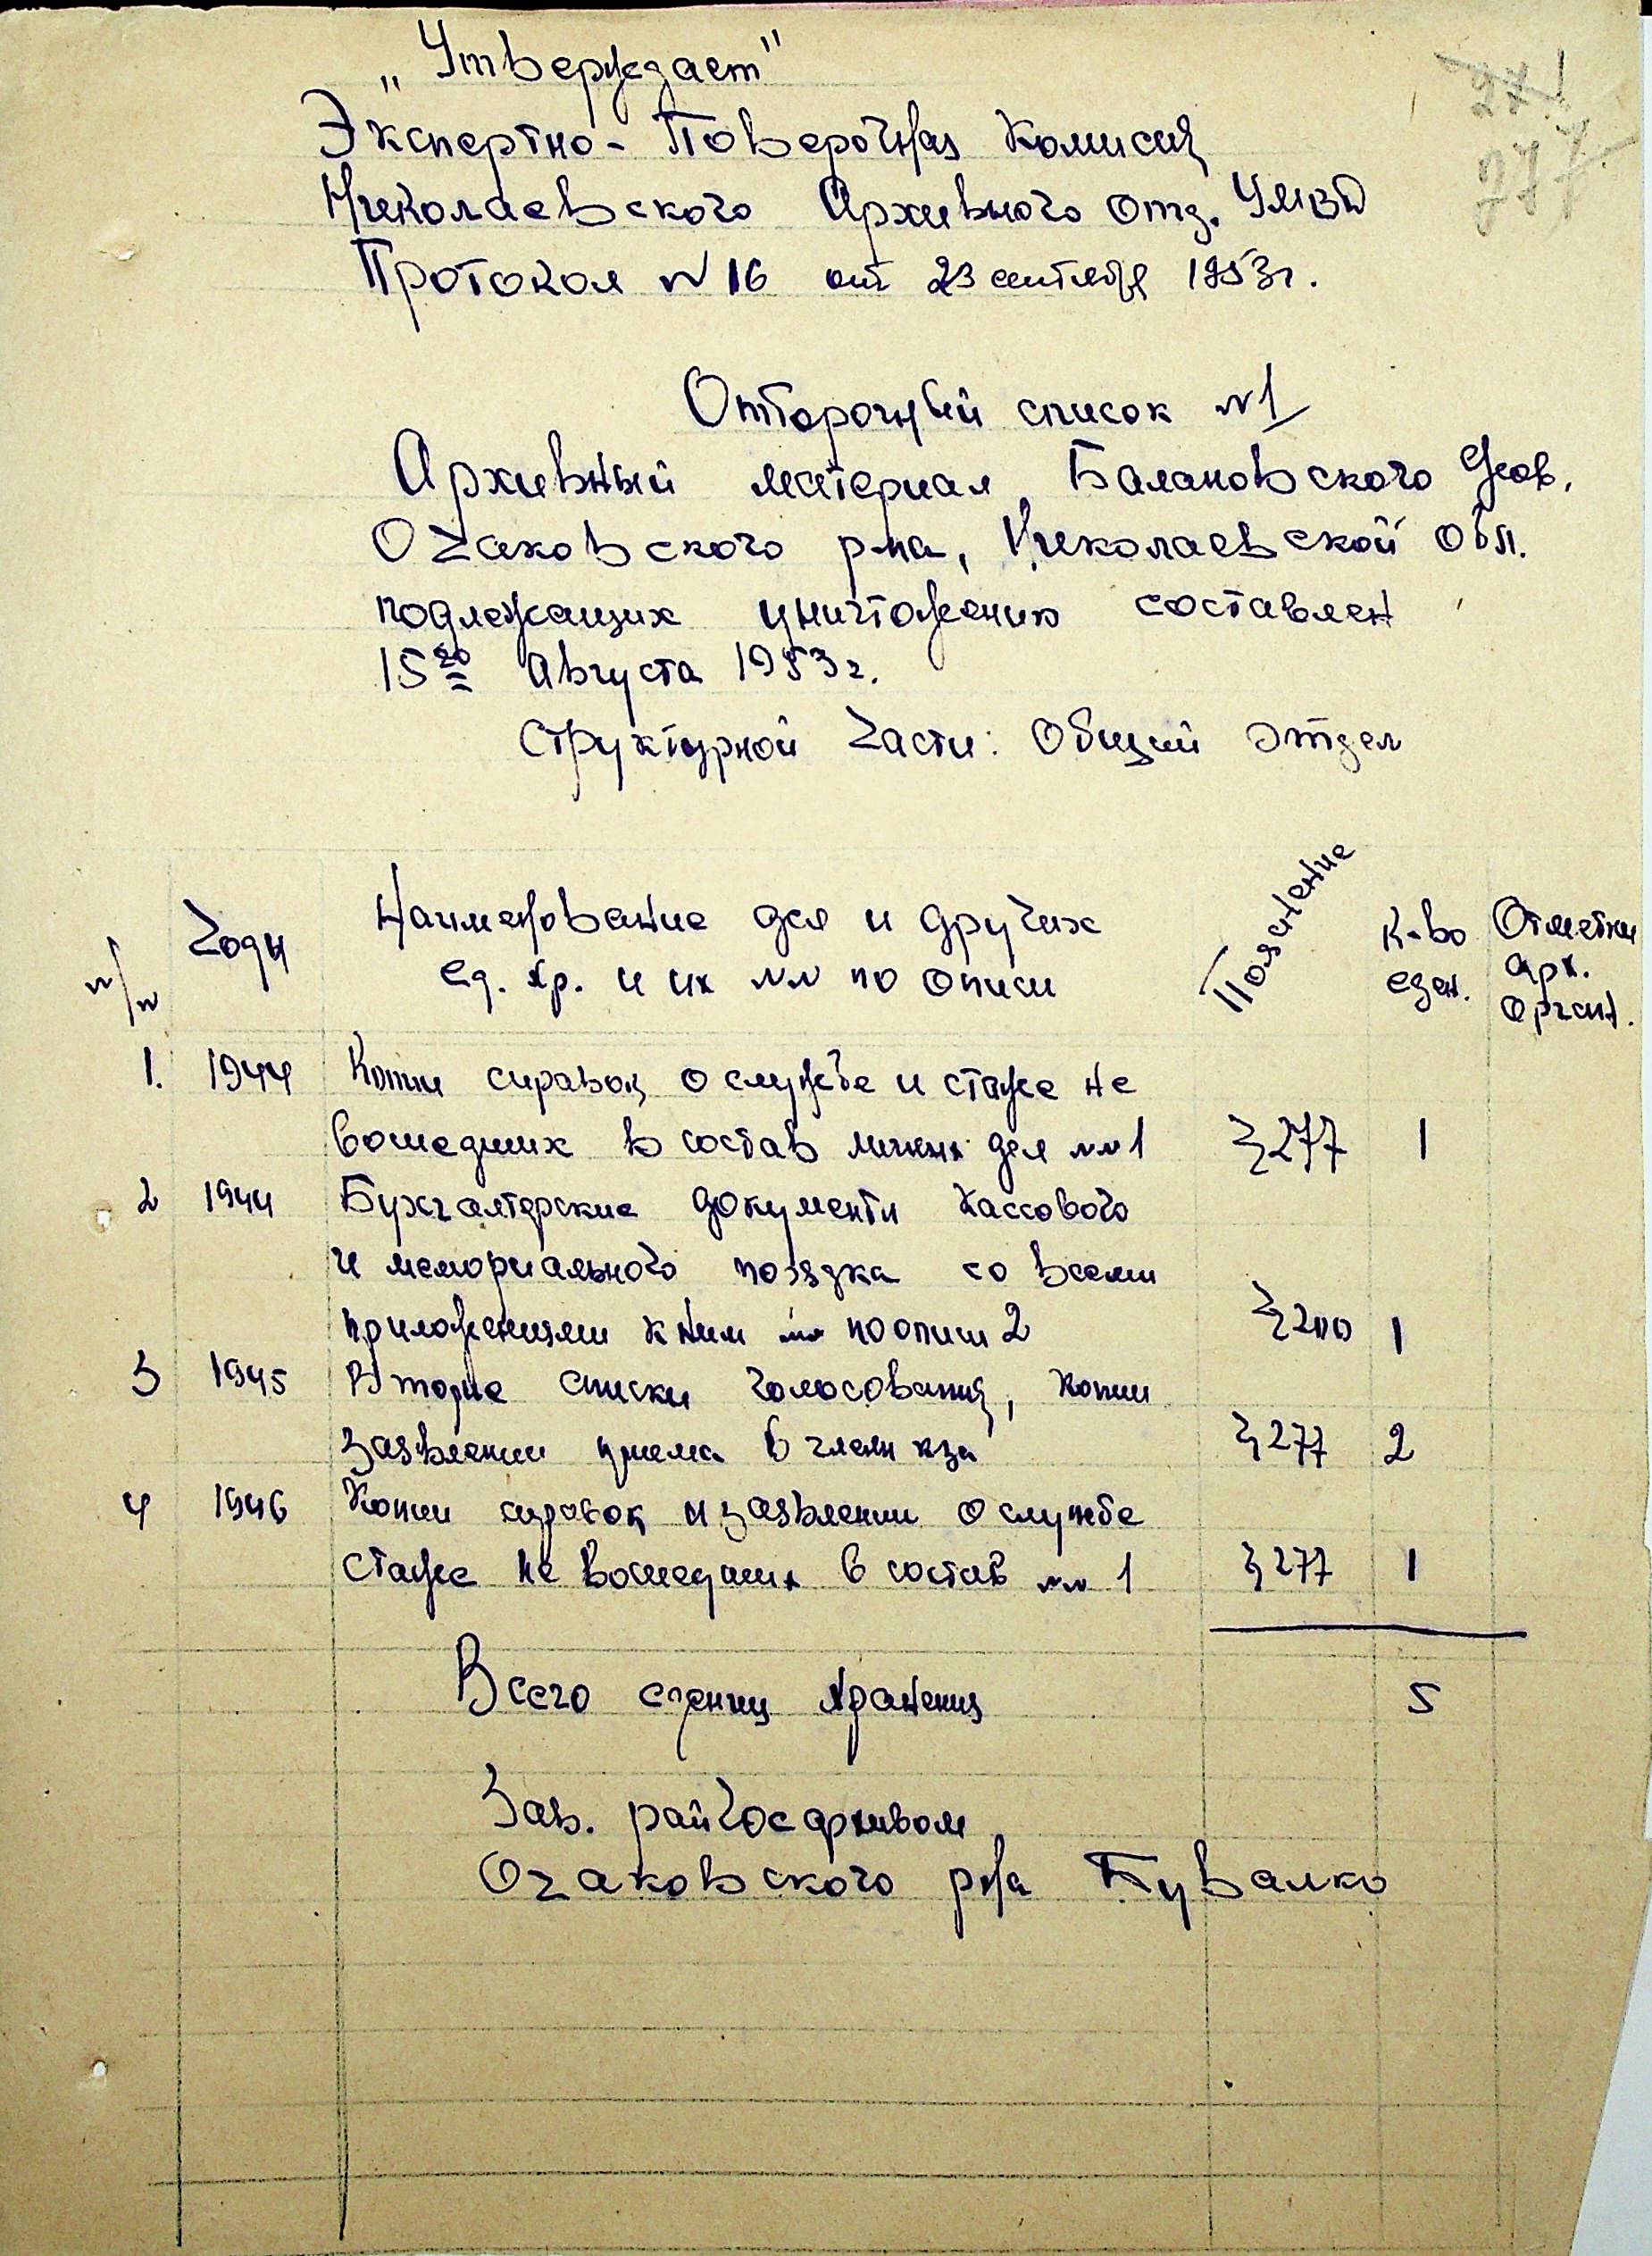 „Утверждает"
Экспертно-Поверочная Комисия
Николаевского Архивного отд. УМВД
Протокол N 16 от 23 сентября 1953г.
271
277
Отборочный список N1
Архивный материал Балановского
Очаковского р-на, Николаевской Обл.
подлежащих уничтожению составлен
15го Августа 1953г.
Структурной части: Общий отдел
N/N Годы Наименование дел и других
ед. хр. и их NN по описи
Пояснение
К-во
един.
Отметки
арх.
орган.
1. 1944 Копии справок о службе и стаже не
вошедших в состав личных дел NN 1 § 277 1
2 1944 Бухгалтерские документы кассового
и мемориального порядка со всеми
приложениями к ним по описи 2 § 200 1
3 1945 Вторые списки голосования, копии
заявлении приема в члены кза § 277 2
4 1946 Копии справок и заявлении о службе
стаже не вошедших в состав NN 1 § 277 1
Всего единиц хранения 5
Зав. райгосархивом
Очаковского р-на Бувалко